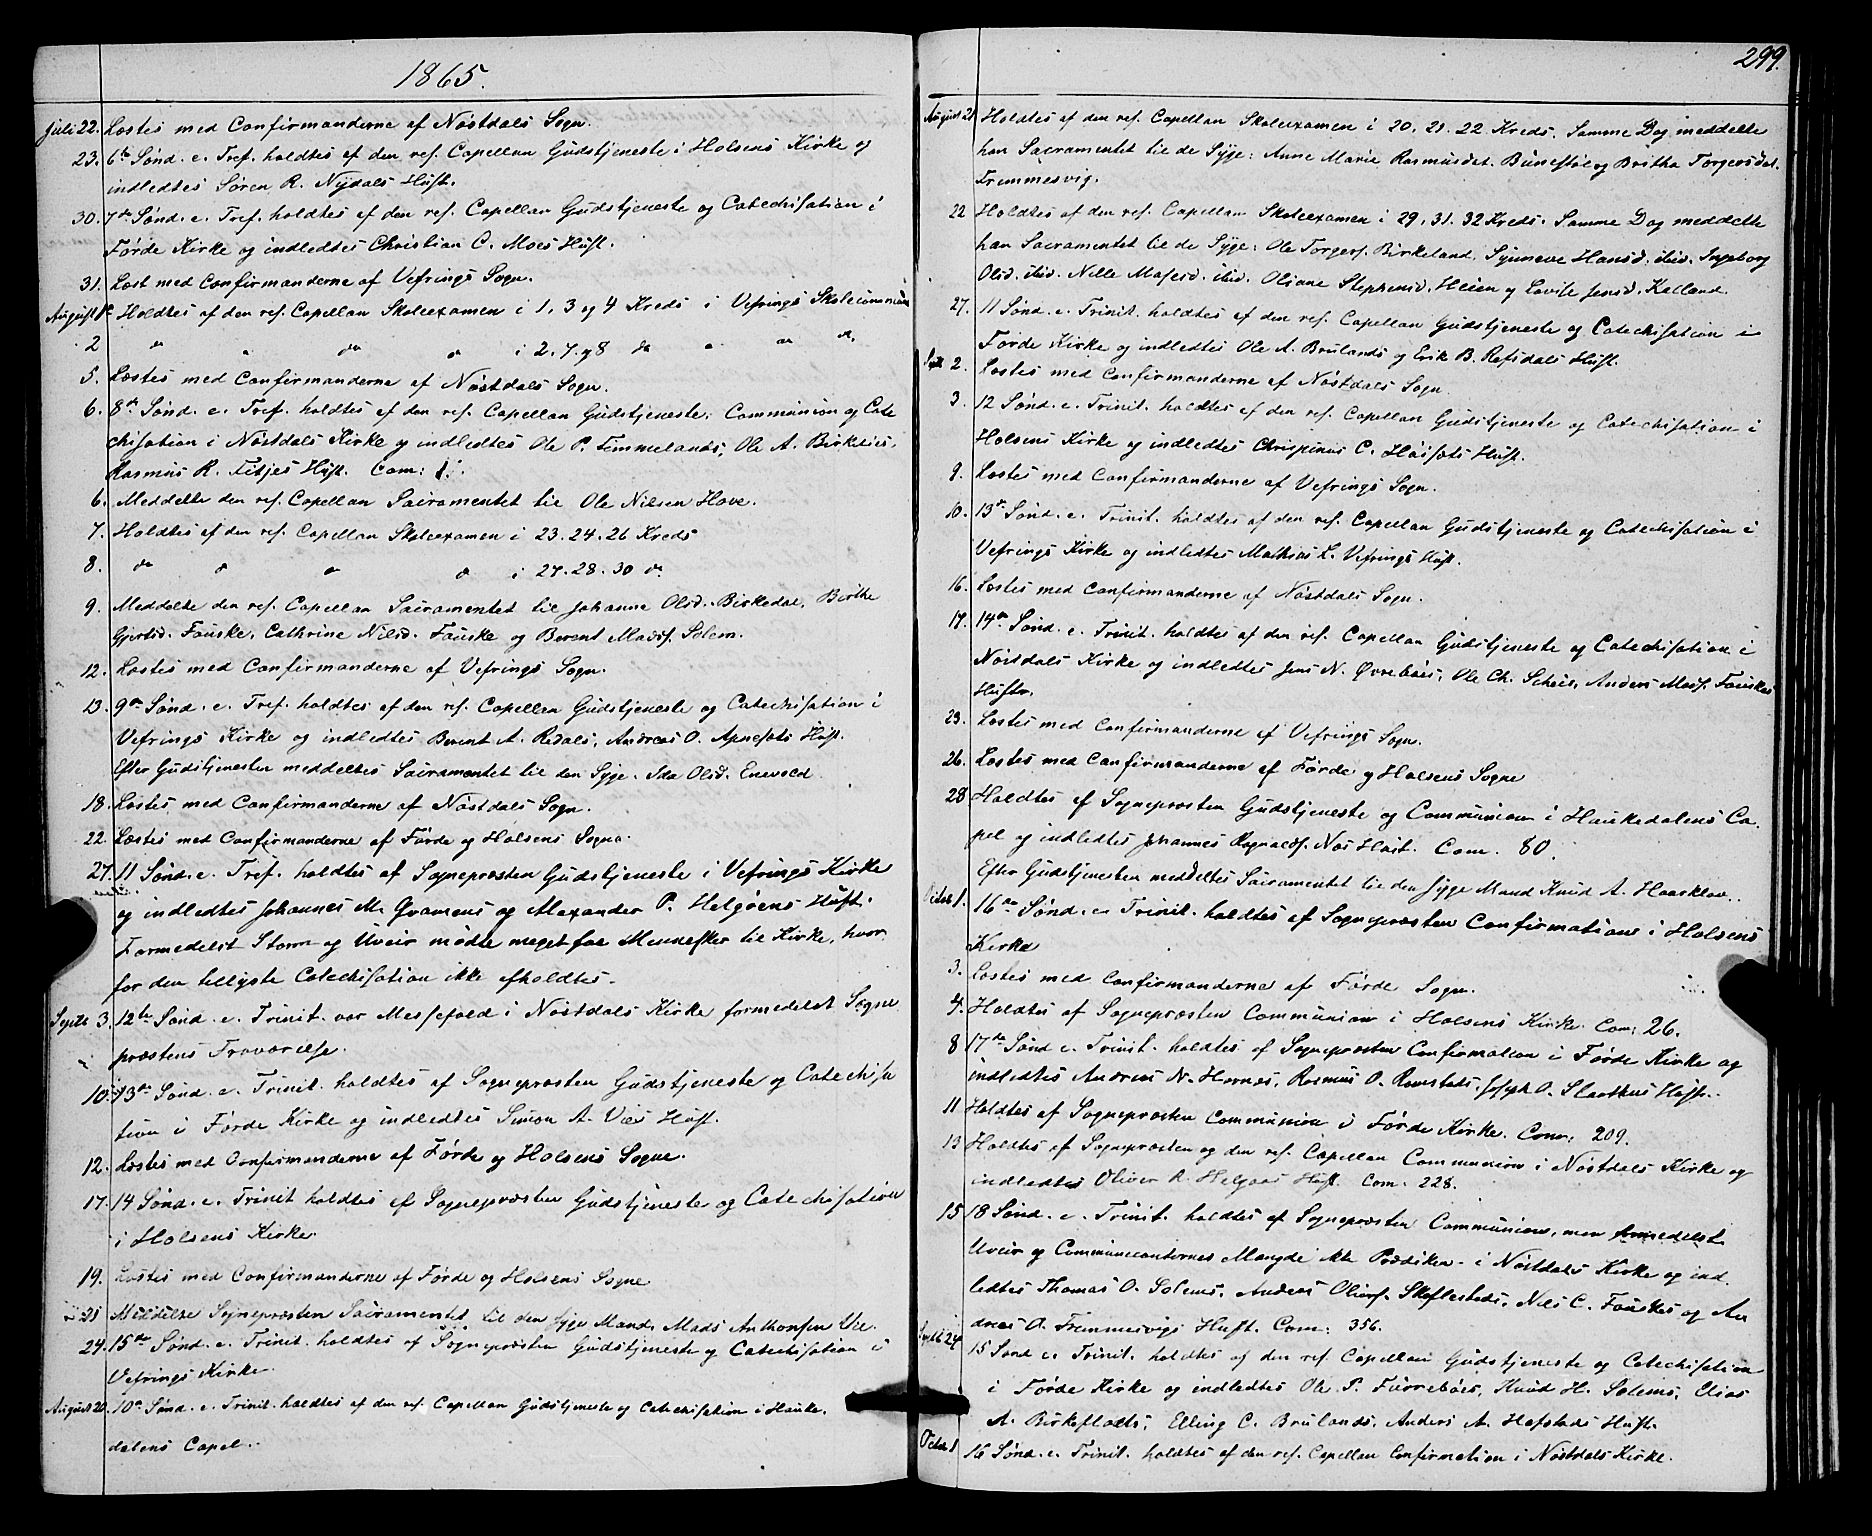 1865.
Juli 22. Læstes med Confirmanderne af Nøstdals Sogn.
23. 6te Sønd. e. Tref. holdtes af den ref. Capellan Gudstjeneste i Holsens Kirke og
indledtes Søren R. Nydals Hust.
30. 7de Sønd. e. Tref. holdtes af den ref. Capellan Gudstjeneste og Catechisation i
Førde Kirke og indledtes Christian C. Moes Hust.
31. Læst med Confirmanderne af Vefrings Sogn.
August 1. Holdtes af den ref. Capellan Skoleexamen i 1, 3 og 4 Kreds i Vefrings
2 " do i 2. 7. og 8 do
5. Læstes med Confirmanderne af Nøstdals Sogn.
6. 8de Sønd. e. Tref. holdtes af den ref. Capellan Gudstjeneste, Communion og Cate
chisation i Nøstdals Kirke og indledtes Ole P. Timmelands, Ole A.
Rasmus R. Fitjes Hust. Com:
6. Meddelte den ref. Capellan Sacramentet til Ole Nilsen Hove.
7. Holdtes af den ref. Capellan Skoleexamen i 23. 24. 26 Kreds
8. do do do i 27. 28. 30 do
9. Meddelte den ref. Capellan Sacramentet til Johanne Olsd. Birkedal, Birthe
Gjertsd. Fauske, Cathrine Nilsd. Fauske og Berent Madsf. Solem.
12. Læstes med Confirmanderne af Vefrings Sogn.
13. 9de Sønd. e. Tref. holdtes af den ref. Capellan Gudstjeneste og Catechisation i
Vefrings Kirke og indledtes Berent A. Redals, Andreas O. Apnesets Hust.
Efter Gudstjenesten meddeltes Sacramentet til den Syge Ida Olsd. Enevold
18. Læstes med Confirmanderne af Nøstdals Sogn.
22. Læstes med Confirmanderne af Førde og Holsens Sogne.
27. 11 Sønd. e. Tref. holdtes af Sognepræsten Gudstjeneste i Vefrings Kirke
og indledtes Johannes M. Gramens og Alexander P. Helgøens Hust.
Formedelst Storm og Uveir mødte meget faa Mennesker til Kirke, hvor
for den tillyste Catechisation ikke afholdtes.
Septb 3. 12te Sønd. e. Trinit. var Messefald i Nøstdals Kirke formedelst Sogne
præstens Fraværelse.
10. 13de Sønd. e. Trinit. holdtes af Sognepræsten Gudstjeneste og Catechisa
tion i Førde Kirke og indledtes Simon A. Vies Hust.
12. Læstes med Confirmanderne af Førde og Holsens Sogne.
17. 14 Sønd. e. Trinit holdtes af Sognepræsten Gudstjeneste og Catechisation
i Holsens Kirke.
19. Læstes med Confirmanderne af Førde og Holsens Sogne
21 Meddelte Sognepræsten Sacramentet til den syge Mand Mads Anthonsen Vie.
24. 15de Sønd. e. Trinit. holdtes af Sognepræsten Gudstjeneste og Catechisation i
Vefrings Kirke.
August 20. 10de Sønd. e. Trinit. holdtes af den ref. Capellan Gudstjeneste og Catechisation i Hauke.
dalens Capel.
299.
August 21 Holdtes af den ref. Capellan Skoleexamen i 20. 21. 22 Kreds. Samme Dag meddelte
han Sacramentet til de Syge: Anne Marie Rasmusdat. og Britha Torgersdat.
Fremmesvig.
22 Holdtes af den ref. Capellan Skoleexamen i 29, 31. 32 Kreds. Samme Dag meddelte
han Sacramentet til de Syge: Ole Torgersf. Birkeland, Synneve Hansd. ibid. Ingeborg
Olsd. ibid. Nille ibid. Oliane Stephensd. Heien og Lovise Jensd. Kalland.
27. 11 Sønd. e. Trinit. holdtes af den ref. Capellan Gudstjeneste og Catechisation i
Førde Kirke og indledtes Ole A. Brulands og Erik B. Refsdals Hust.
2. Læstes med Confirmanderne af Nøstdals Sogn
3. 12 Sønd. e. Trinit. holdtes af den ref. Capellan Gudstjeneste og Catechisation i
Holsens Kirke og indledtes Chrispinus C. Høisæts Hust.
9. Læstes med Confirmanderne af Vefrings Sogn.
10. 13de Sønd. e. Trinit. holdtes af den ref. Capellan Gudstjeneste og Catechisation i
Vefrings Kirke og indledtes Mathias L. Vefrings Hust.
16. Læstes med Confirmanderne af Nøstdals Sogn.
17. 14de Sønd. e. Trinit. holdtes af den ref. Capellan Gudstjeneste og Catechisation i
Nøstdals Kirke og indledtes Jens N. Øvrebøes, Ole Ch. Scheis, Anders Madsf. Fauskes
Hustr.
23. Læstes med Confirmanderne af Vefrings Sogn.
26. Læstes med Confirmanderne af Førde og Holsens Sogne
28 Holdtes af Sognepræsten Gudstjeneste og Communion i Haukedalens Ca.
pel og indledtes Johannes Hust. Com. 80.
Efter Gudstjenesten meddeltes Sacramentet til den syge Mand Knud A. Haarklov.
Octob 1. 16de Sønd. e. Trinit. holdtes af Sognepræsten Confirmation i Holsens
Kirke
3. Læstes med Confirmanderne af Førde Sogn.
4. Holdtes af Sognepræsten Communion i Holsens Kirke. Com: 26.
8 17de Sønd e. Trinit. holdtes af Sognepræsten Confirmation i Førde Kirke og
indledtes Andreas N. Hornes, Rasmus O. Ramstads, Joseph O. Hustr.
11 Holdtes af Sognepræsten Communion i Førde Kirke. Com: 209.
13 Holdtes af Sognepræsten og den ref. Capellan Communion i Nøstdals Kirke og
indledtes Oliver R. Helgaas Hust. Com. 228.
15 18 Sønd. e. Trinit. holdtes af Sognepræsten Communion, men formedelst
Uveir og Communicanternes Mængde ikke Prædiken i Nøstdals Kirke og ind
ledtes Thomas O. Solems, Andreas Skeflesteds, Nils C. Fauskes og An
dreas O. Fremmesvigs Hust. Com: 356.
Septb 24 15 Sønd e. Trinit. holdtes af den ref. Capellan Gudstjeneste og Catechisation
i Førde Kirke og indledtes Ole P. Furrebøes, Knud H. Solems, Elias
A. Birkeflots, Elling C. Brulands, Anders A. Hafstads Hustr.
Octob 1 16 Sønd. e. Trinit. holdtes af den ref. Capellan Confirmation i Nøstdals Kirke.